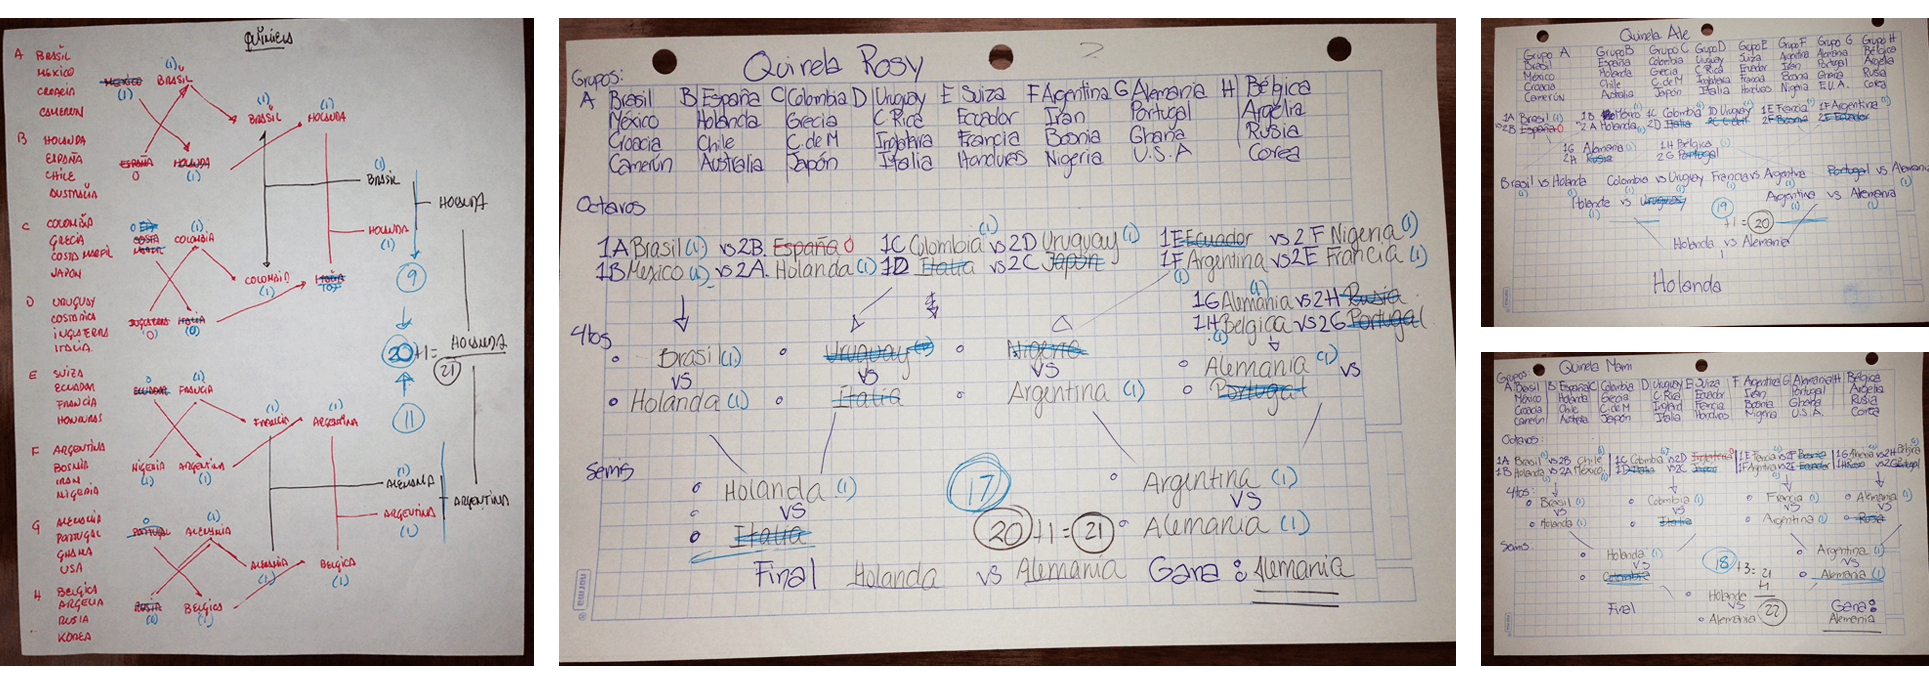 Quiniela
A BRASIL
MÉXICO
CROACIA
CAMERUN
B HOLANDA
ESPAÑA
CHILE
AUSTRALIA
C COLOMBIA
GRECIA
COSTA MARFIL
JAPON
D URUGUAY
COSTA RICA
INGLATERRA
ITALIA
E SUIZA
ECUADOR
FRANCIA
HONDURAS
F ARGENTINA
BOSNIA
IRAN
NIGERIA
G ALEMANIA
PORTUGAL
GHANA
USA
H BELGICA
ARGELIA
RUSIA
KOREA
MEXICO BRASIL
(1) (1)
ESPAÑA HOLANDA
0 (1)
COSTA MARFIL COLOMBIA
(1)
INGLATERRA ITALIA
(0) (0)
ECUADOR FRANCIA
0 (1)
NIGERIA ARGENTINA
(1) (1)
PORTUGAL ALEMANIA
0 (1)
RUSIA BELGICA
(0) (1)
BRASIL HOLANDA
(1) (1)
COLOMBIA ITALIA
(1) (0)
FRANCIA ARGENTINA
(1) (1)
ALEMANIA BELGICA
(1) (1)
BRASIL
(1)
HOLANDA
(1)
HOLANDA
9
20 +1= HOLANDA
21
11
ALEMANIA
(1)
ARGENTINA
(1)
ARGENTINA
Quinela Rosy 2
Grupos:
A Brasil B España C Colombia D Uruguay E Suiza F Argentina G Alemania H Bélgica
México Holanda Grecia C Rica Ecuador Irán Portugal Argelia
Croacia Chile C. de M Inglateria Francia Bosnia Ghana Rusia
Camerún Australia Japón Italia Honduras Nigeria U.S.A Corea
Octavos
1A Brasil (1) vs 2B. España 0 1C Colombia (1) vs 2D Uruguay (1) 1E Ecuador vs 2F Nigeria (1)
1B Mexico (1) vs 2A. Holanda (1) 1D Italia vs 2C Japón 1F Argentina (1) vs 2E Francia (1)
1G Alemania (1) vs 2H Rusia
1H Belgica (1) vs 2G Portugal
4tos
Brasil (1) Uruguay Nigeria Alemania (1) vs
vs vs vs
Holanda (1) Italia Argentina (1) Portugal
Semis
Holanda (1) 17 Argentina (1)
vs vs
Italia 20 +1= 21 Alemania (1)
Final Holanda vs Alemania Gana: Alemania
Quinela Ale
Grupo A Grupo B Grupo C Grupo D Grupo E Grupo F Grupo G Grupo H
Brasil España Colombia Uruguay Suiza Argentina Alemania Bélgica
México Holanda Grecia C Rica Ecuador Irán Portugal Argelia
Croacia Chile C. de M Inglaterra Francia Bosnia Ghana Rusia
Camerún Australia Japón Italia Honduras Nigeria E.U.A. Corea
1A Brasil (1) 1B México 1C Colombia 1D Uruguay 1E Francia 1F Argentina
2B España 0 2A Holanda 2D Italia 2F Bosnia 2E Ecuador
1G Alemania 1H Bélgica
2H Rusia 2G Portugal
Brasil vs Holanda Colombia vs Uruguay Francia vs Argentina Portugal vs Alemania
(1) (1) (1) (1) (1) (1) (1)
Holanda vs Uruguay Argentina vs Alemania
(1) 19 +1= 20 (1) (1)
Holanda vs Alemania
Holanda
Quinela Mami
Grupos:
A Brasil B España C Colombia D Uruguay E Suiza F Argentina G Alemania H Bélgica
México Holanda Grecia C Rica Ecuador Irán Portugal Argelia
Croacia Chile C. de M Inglard Francia Bosnia Ghana Rusia
Camerún Australia Japón Italia Honduras Nigeria U.S.A. Corea
Octavos:
1A Brasil vs 2B Chile 1C Colombia vs 2D Inglaterra 1E Francia vs 2F Bosnia 1G Alemania vs 2H Belgica
1B Holanda vs 2A México 1D Italia vs 2C Japón 1F Argentina vs 2E Ecuador 1H Rusia vs 2G Portugal
4tos:
Brasil (1) Colombia (1) Francia (1) Alemania (1)
vs vs vs vs
Holanda (1) Italia Argentina (1) Rusia
Semis:
Holanda (1) Argentina (1)
vs 18 +3= 21 vs
Colombia +1 Alemania (1)
Holande
Final vs 22 Gana:
Alemania Alemania